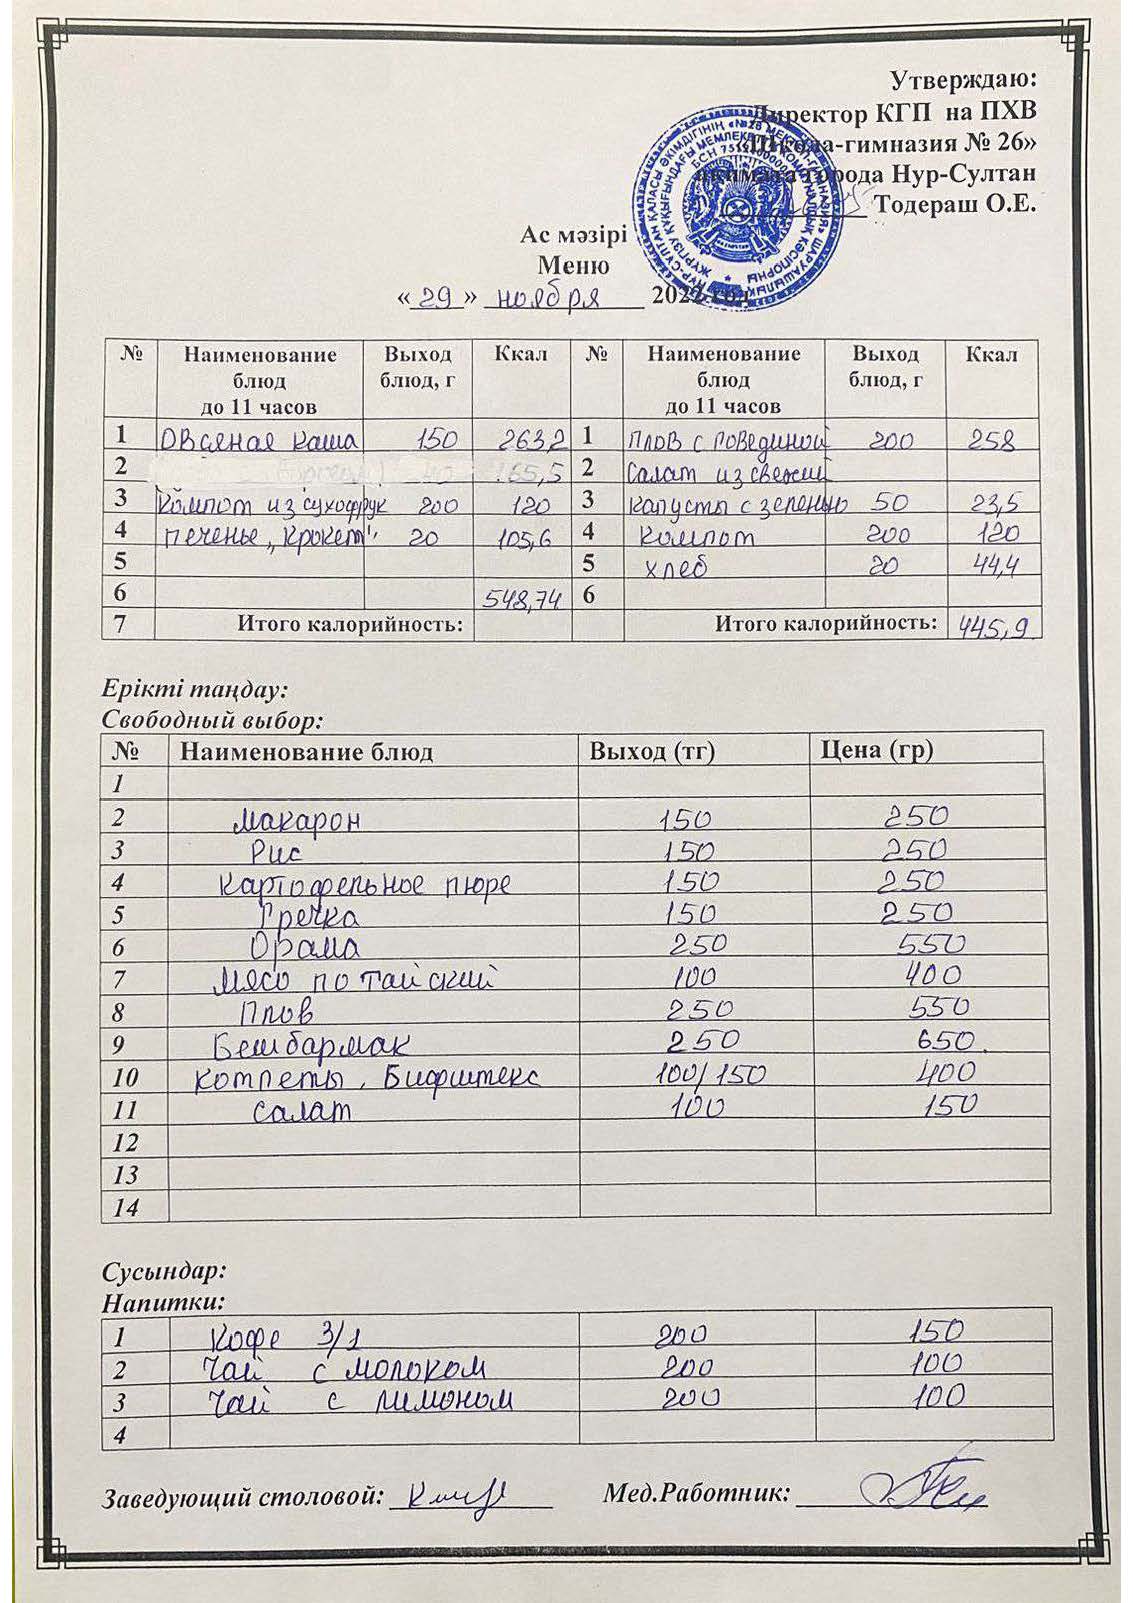 Утверждаю:
Директор КГП на ПХВ
«Школа-гимназия № 26»
акимата города Нур-Султан
Тодераш О.Е.
Ас мәзірі
Меню
«29» ноября 202 год
№ Наименование блюд до 11 часов Выход блюд, г Ккал № Наименование блюд до 11 часов Выход блюд, г Ккал
1 Овсяная каша 150 263,2 1 Плов с говединой 200 258
2 165,5 2 Салат из свежий
3 Компот из сухофрук 200 120 3 капусты с зеленью 50 23,5
4 печенье „Крокет" 20 105,6 4 Компот 200 120
5 5 хлеб 20 44,4
6 548,74 6
7 Итого калорийность: Итого калорийность: 445,9
Ерікті таңдау:
Свободный выбор:
№ Наименование блюд Выход (тг) Цена (гр)
1
2 Макарон 150 250
3 Рис 150 250
4 Картофельное пюре 150 250
5 Гречка 150 250
6 Орама 250 550
7 Мясо по тайский 100 400
8 Плов 250 550
9 Бешбармак 250 650
10 Котлеты, Бифштекс 100/150 400
11 Салат 100 150
12
13
14
Сусындар:
Напитки:
1 Кофе 3/1 200 150
2 Чай с молоком 200 100
3 Чай с лимоном 200 100
4
Заведующий столовой: Мед.Работник: